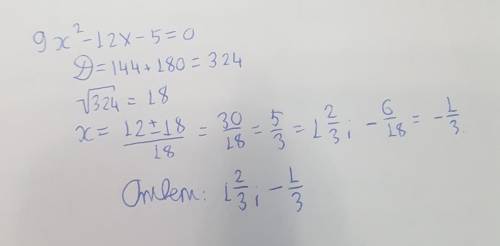 9x² - 12x - 5 = 0
D = 144 + 180 = 324
√324 = 18
x = (12 ± 18)/18 = 30/18 = 5/3 = 1 2/3; - 6/18 = - 1/3.
Ответ: 1 2/3; - 1/3